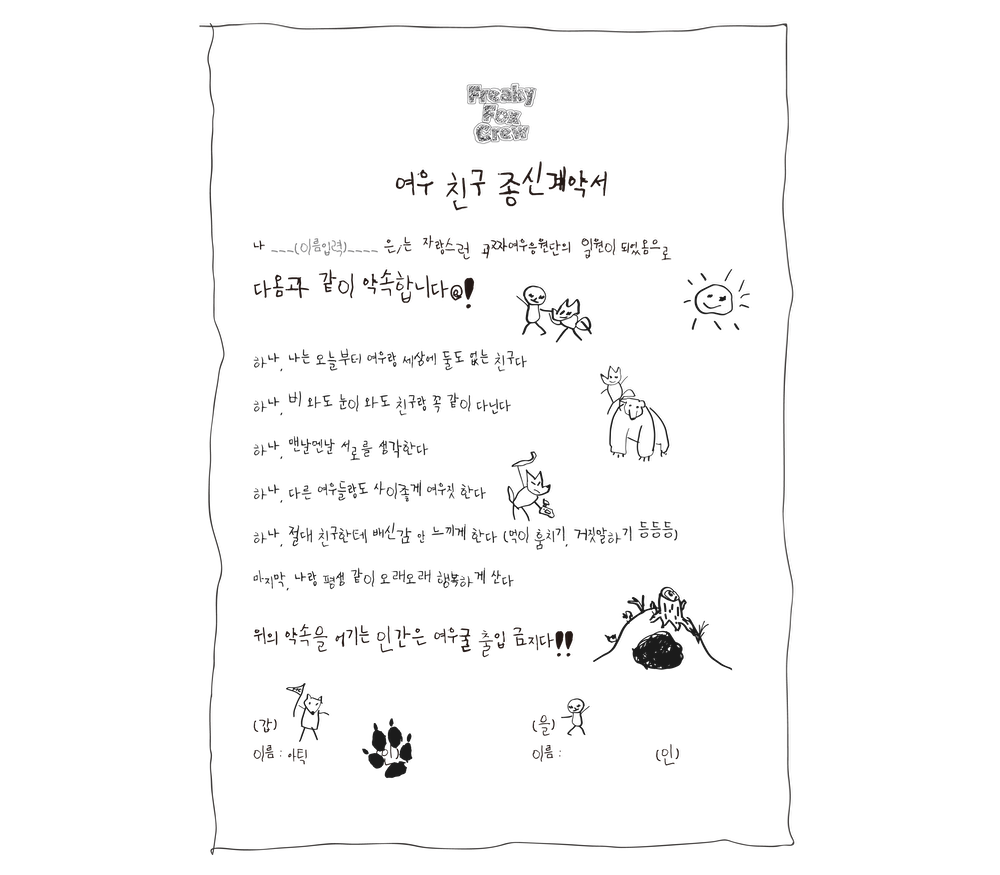 Freaky
Fox
Crew
여우 친구 종신계약서
나 ___(이름입력)____ 은/는 자랑스런 괴짜여우응원단의 일원이 되었음으로
다음과 같이 약속합니다!
하나, 나는 오늘부터 여우랑 세상에 둘도 없는 친구다
하나, 비 와도 눈이 와도 친구랑 꼭 같이 다닌다
하나, 맨날맨날 서로를 생각한다
하나, 다른 여우들랑도 사이좋게 여우짓 한다
하나, 절대 친구한테 배신감 안 느끼게 한다 (먹이 훔치기, 거짓말하기 등등등)
마지막, 나랑 평생 같이 오래오래 행복하게 산다
위의 약속을 어기는 인간은 여우굴 출입 금지다!!
(갑)
이름 : 아틱
(을)
이름 : (인)